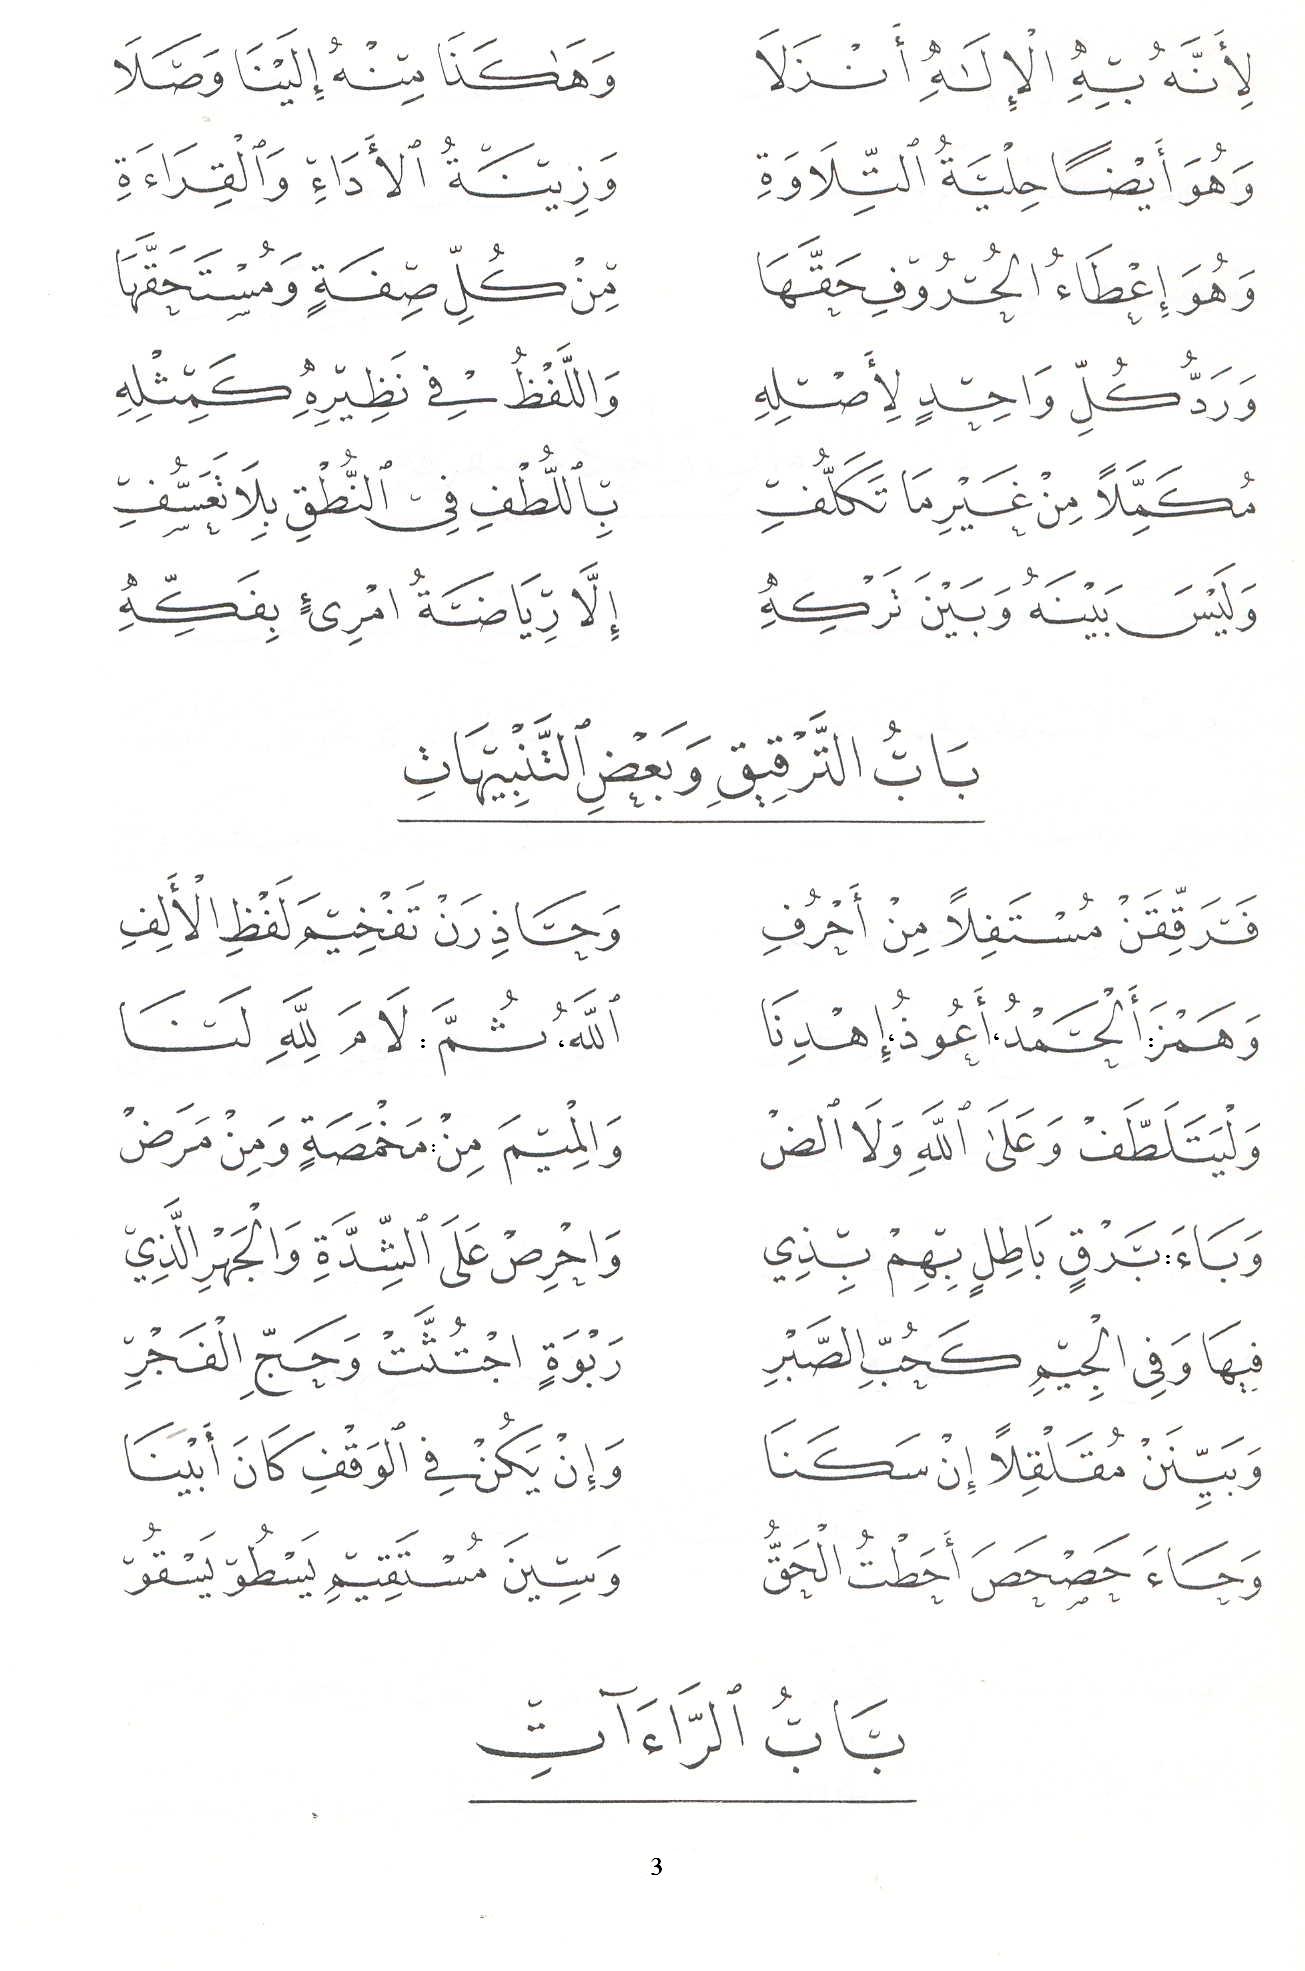 لِأَنَّهُ بِهِ الْإِلَٰهُ أَنْزَلَا وَهَٰكَذَا مِنْهُ إِلَيْنَا وَصَلَا
وَهُوَ أَيْضًا حِلْيَةُ التِّلَاوَةِ وَزِينَةُ الْأَدَاءِ وَالْقِرَاءَةِ
وَهُوَ إِعْطَاءُ الْحُرُوفِ حَقَّهَا مِنْ كُلِّ صِفَةٍ وَمُسْتَحَقَّهَا
وَرَدُّ كُلِّ وَاحِدٍ لِأَصْلِهِ وَاللَّفْظُ فِي نَظِيرِهِ كَمِثْلِهِ
مُكَمِّلًا مِنْ غَيْرِ مَا تَكَلُّفِ بِاللُّطْفِ فِي النُّطْقِ بِلَا تَعَسُّفِ
وَلَيْسَ بَيْنَهُ وَبَيْنَ تَرْكِهِ إِلَّا رِيَاضَةُ امْرِئٍ بِفَكِّهِ
بَابُ التَّرْقِيقِ وَبَعْضِ التَّنْبِيهَاتِ
فَرَقِّقَنْ مُسْتَفِلًا مِنْ أَحْرُفِ وَحَاذِرَنْ تَفْخِيمَ لَفْظِ الْأَلِفِ
وَهَمْزَ: أَلْحَمْدُ، أَعُوذُ، إِهْدِنَا اللَّهُ، ثُمَّ: لَامَ لِلَّهِ لَنَا
وَلْيَتَلَطَّفْ وَعَلَى اللَّهِ وَلَا الضْ وَالْمِيمَ مِنْ: مَخْمَصَةٍ وَمِنْ مَرَضْ
وَبَاءَ: بَرْقٍ بَاطِلٍ بِهِمْ بِذِي وَاحْرِصْ عَلَى الشِّدَّةِ وَالْجَهْرِ الَّذِي
فِيهَا وَفِي الْجِيمِ كَحُبِّ الصَّبْرِ رَبْوَةٍ اجْتُثَّتْ وَحَجِّ الْفَجْرِ
وَبَيِّنَنْ مُقَلْقِلًا إِنْ سَكَنَا وَإِنْ يَكُنْ فِي الْوَقْفِ كَانَ أَبْيَنَا
وَحَاءَ حَصْحَصَ أَحَطْتُ الْحَقُّ وَسِينَ مُسْتَقِيمِ يَسْطُو يَسْقُو
بَابُ الرَّاءَاتِ
3